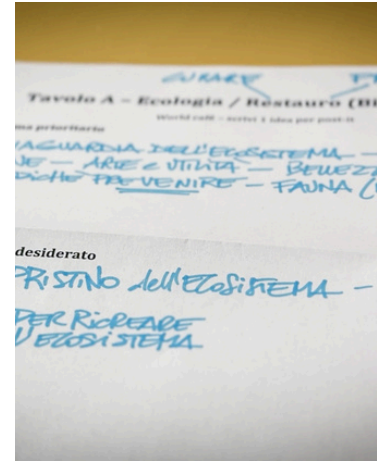 CURARE
Tavolo A – Ecologia / Restauro (Bi
World café – scrivi 1 idea per post-it
ma prioritario
AGUARDIA DELL'ECOSISTEMA –
NE – ARTE E UTILITÀ – BELLEZZ
DICHE PREVENIRE – FAUNA (
desiderato
PRISTINO dell'ECOSISTEMA –
PER RICREARE
L'ECOSISTEMA